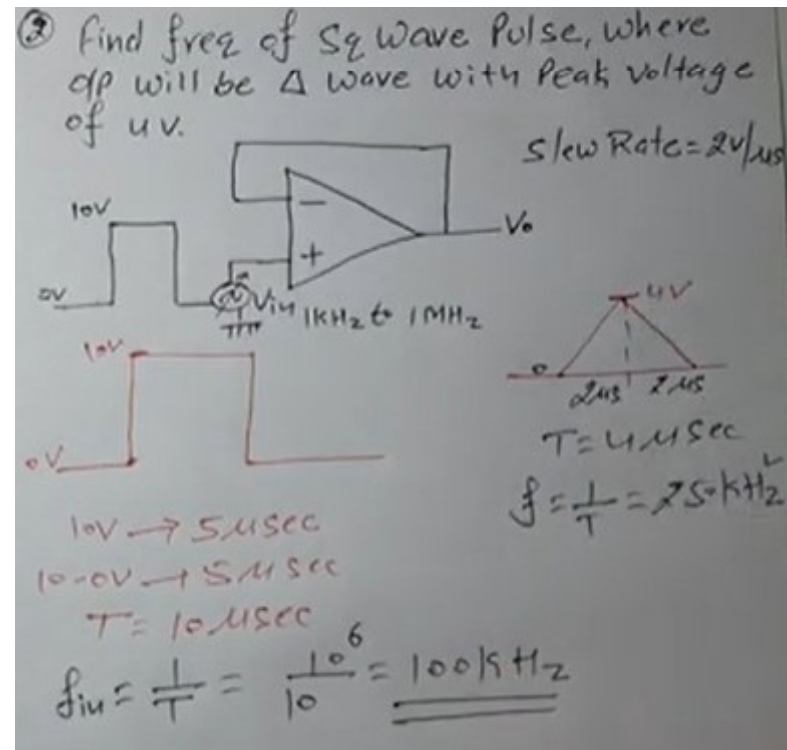 ② Find freq of Sq Wave Pulse, where
o/p will be Δ wave with Peak voltage
of 4V.
Slew Rate = 2V/μs
10V
0V
−
+
Vo
Vin 1KHz to 1MHz
10V
0V
4V
0
2μs 2μs
T = 4μsec
f = 1/T = 250KHz
10V → 5μsec
10-0V → 5μsec
T = 10μsec
fin = 1/T = 10⁶/10 = 100KHz